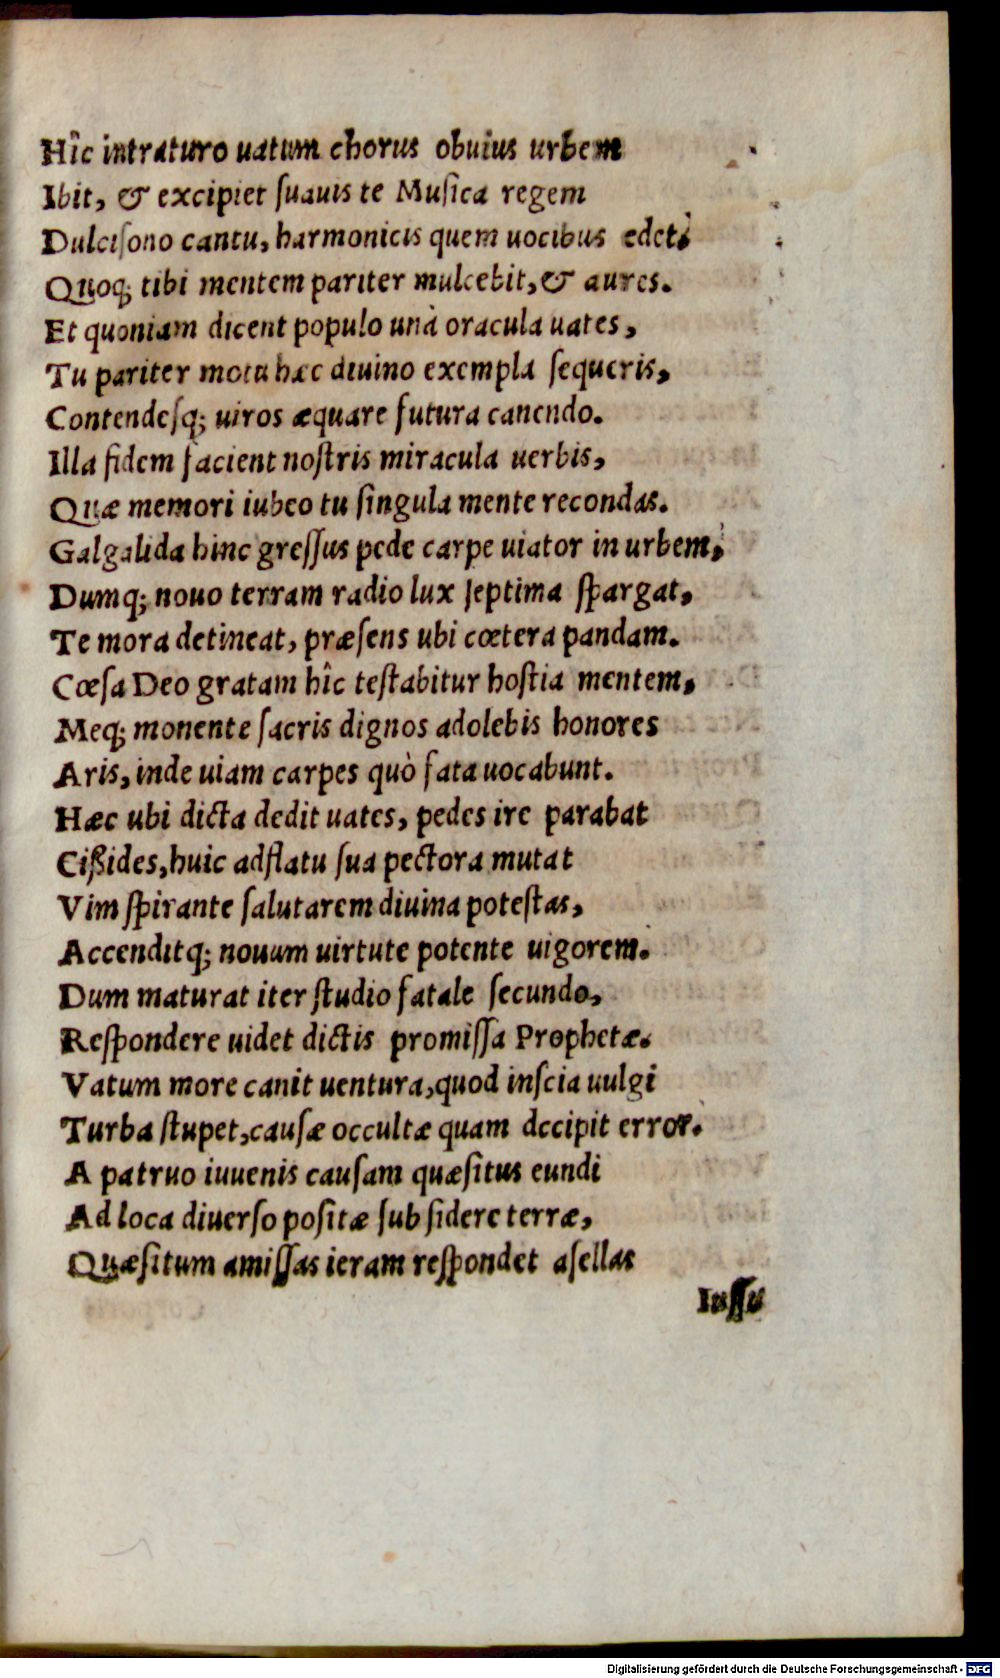 Hîc intraturo uatum chorus obuius urbem
Ibit, & excipiet ſuauis te Muſica regem
Dulciſono cantu, harmonicis quem uocibus edet;
Quoq; tibi mentem pariter mulcebit, & aures.
Et quoniam dicent populo unà oracula uates,
Tu pariter motu hæc diuino exempla ſequeris,
Contendeſq; uiros æquare futura canendo.
Illa fidem facient noſtris miracula uerbis,
Quæ memori iubeo tu ſingula mente recondas.
Galgalida hinc greſſus pede carpe uiator in urbem,
Dumq; nouo terram radio lux ſeptima ſpargat,
Te mora detineat, præſens ubi cœtera pandam.
Cœſa Deo gratam hîc teſtabitur hoſtia mentem,
Meq; monente ſacris dignos adolebis honores
Aris, inde uiam carpes quò fata uocabunt.
Hæc ubi dicta dedit uates, pedes ire parabat
Cißides, huic adflatu ſua pectora mutat
Vim ſpirante ſalutarem diuina poteſtas,
Accenditq; nouam uirtute potente uigorem.
Dum maturat iter ſtudio fatale ſecundo,
Reſpondere uidet dictis promiſſa Prophetæ.
Vatum more canit uentura, quod inſcia uulgi
Turba ſtupet, cauſæ occultæ quam decipit error.
A patruo iuuenis cauſam quæſitus eundi
Ad loca diuerſo poſitæ ſub ſidere terræ,
Quæſitum amiſſas ieram reſpondet aſellas
Iuſſu
Digitalisierung gefördert durch die Deutsche Forschungsgemeinschaft - DFG